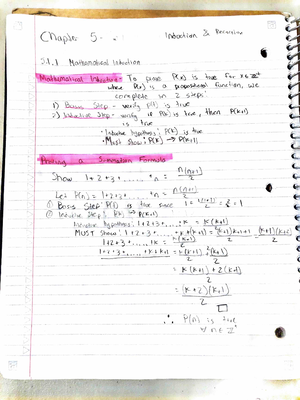 Chapter 5 - Induction & Recursion
5.1.1 Mathematical Induction
Mathematical Induction - To prove P(n) is true for
where P(n) is a propositional function, we
complete in 2 steps:
1) Basis Step - verify P(1) is true
2) Inductive Step - verify if P(k) is true, then P(k+1)
is true
· Inductive hypothesis: P(k) is true
· Must show: P(k) → P(k+1)
a Summation Formula
Show 1+2+3+ ...... +n = n(n+1)/2
Let P(n) = 1+2+3+ ...... +n = n(n+1)/2
① Basis Step: P(1) is true since
② Inductive Step: P(k) → P(k+1)
Inductive hypothesis: 1+2+3+ ...... +k = k(k+1)
MUST SHOW: 1+2+3+
1+2+3+ ...... +k = k(k+1)/2
= k(k+1) + 2(k+1)/2
= (k+2)(k+1)/2
∴ P(n) is true
∀ n ∈ Z⁺